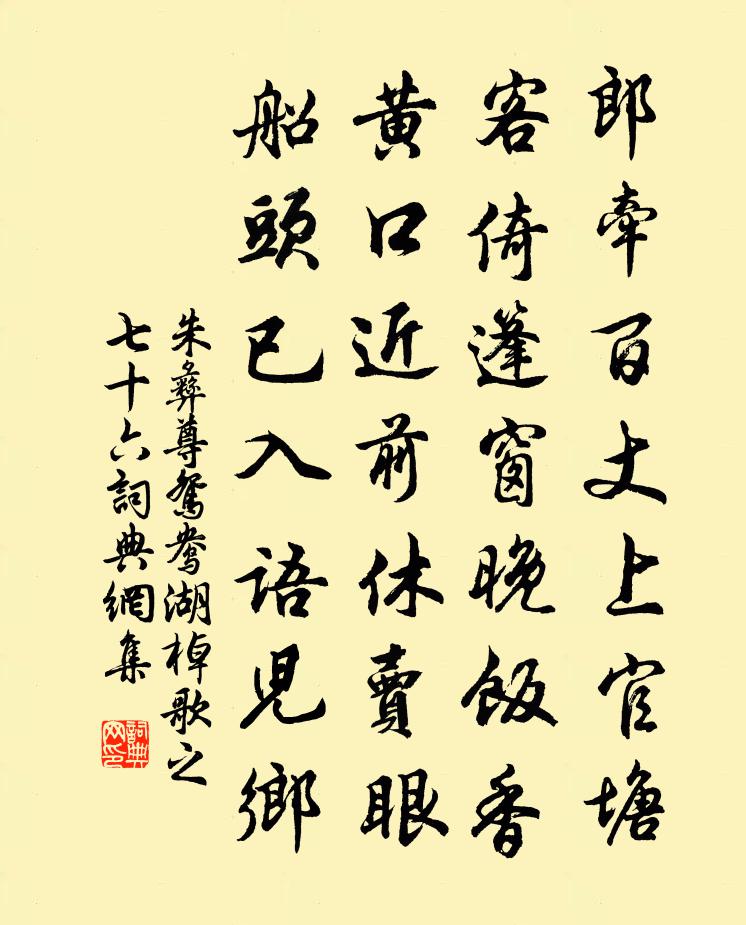 郎牽百丈上官塘
客倚蓬窗晚飯香
黄口近前休賣眼
船頭已入語兒鄉
朱彝尊鴛鴦湖棹歌之
七十六詞典網集
詞典網印